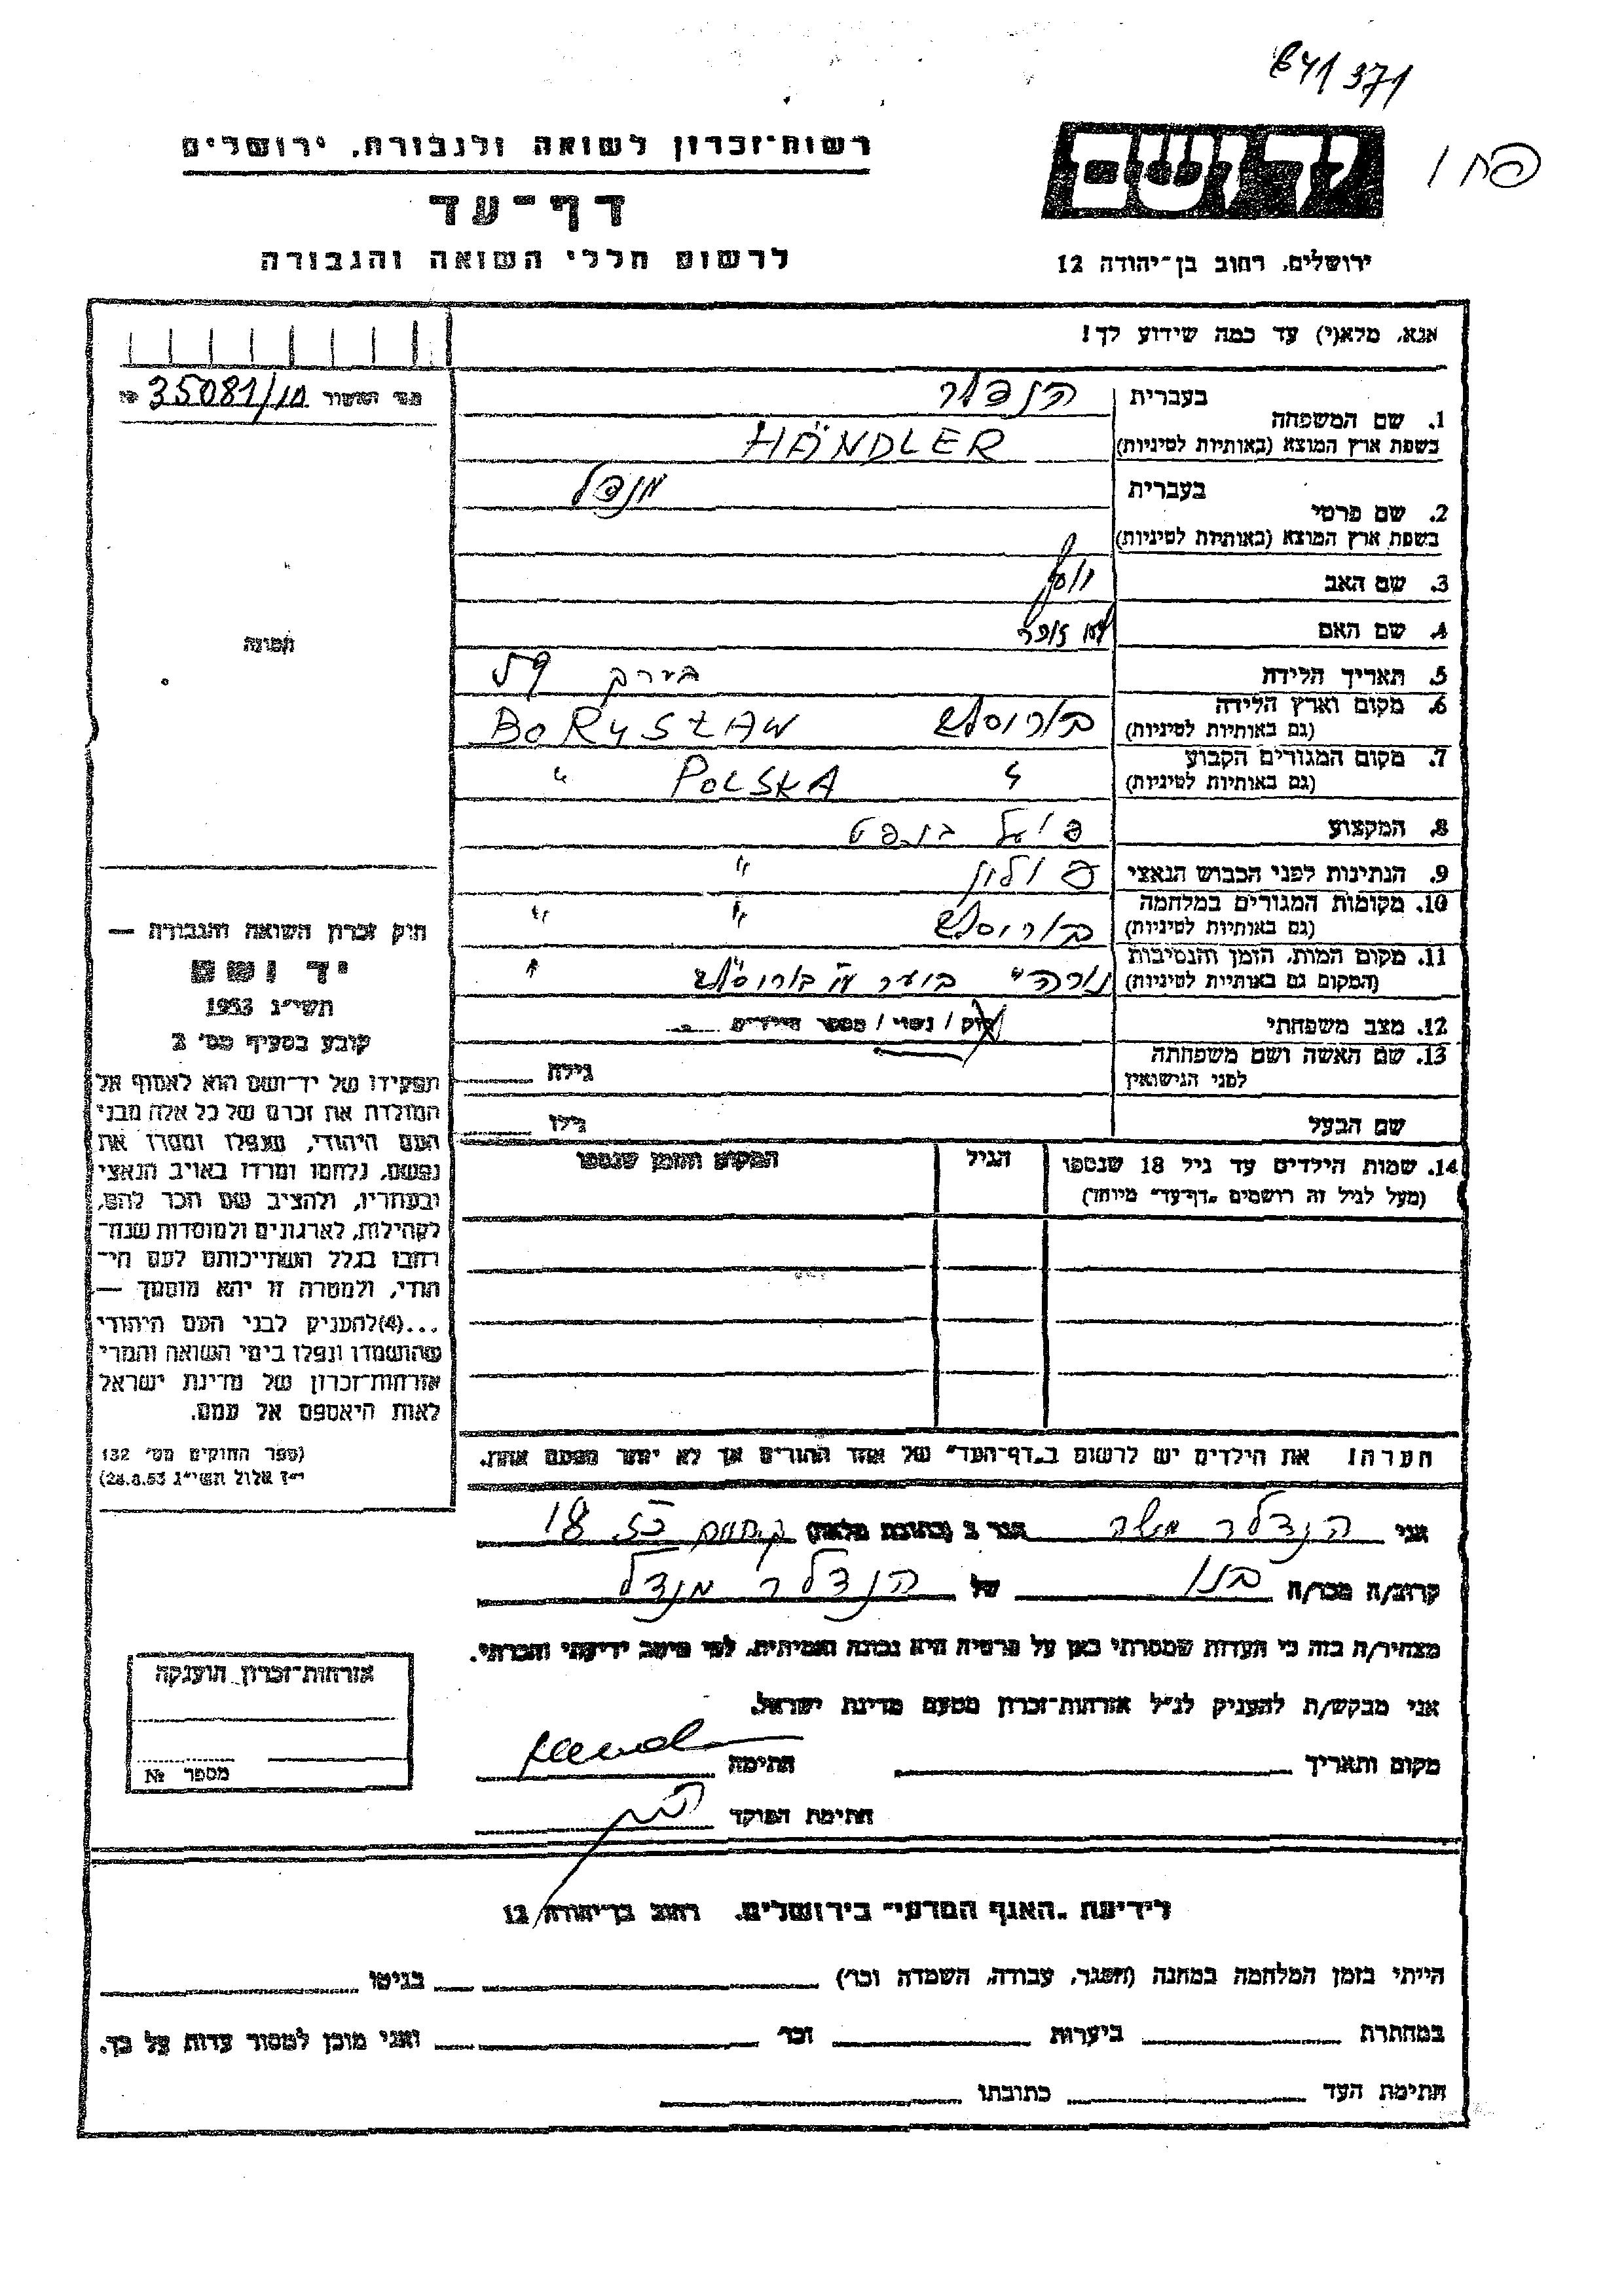 641371
רשות־זכרון לשואה ולגבורה, ירושלים
דף־עד
לרשום חללי השואה והגבורה
ידושם
ירושלים, רחוב בן־יהודה 12
אנא, מלא(י) עד כמה שידוע לך!
35081/
1. שם המשפחה
בעברית הנדלר
בשפת ארץ המוצא (באותיות לטיניות) HÄNDLER
2. שם פרטי
בעברית מנדל
בשפת ארץ המוצא (באותיות לטיניות)
3. שם האב יוסף
4. שם האם
5. תאריך הלידה 59
6. מקום וארץ הלידה (גם באותיות לטיניות) בוריסלב BORYSŁAW
7. מקום המגורים הקבוע (גם באותיות לטיניות) " POLSKA "
8. המקצוע פועל בנפט
9. הנתינות לפני הכבוש הנאצי פולון "
10. מקומות המגורים במלחמה (גם באותיות לטיניות) בוריסלב " "
11. מקום המות, הזמן והנסיבות (המקום גם באותיות לטיניות) נורה "
12. מצב משפחתי רוק / נשוי / מספר הילדים
13. שם האשה ושם משפחתה לפני הנישואין גילה
שם הבעל גילו
14. שמות הילדים עד גיל 18 שנספו (מעל לגיל זה רושמים „דף־עד" מיוחד)
הגיל
המקום והזמן שנספו
תמונה
חוק זכרון השואה והגבורה —
יד ושם
תשי"ג 1953
קובע בסעיף מס' 2
תפקידו של יד־ושם הוא לאסוף אל
המולדת את זכרם של כל אלה מבני
העם היהודי, שנפלו ומסרו את
נפשם, נלחמו ומרדו באויב הנאצי
ובעוזריו, ולהציב שם וזכר להם,
לקהילות, לארגונים ולמוסדות שנח־
רבו בגלל השתייכותם לעם הי־
הודי, ולמטרה זו יהא מוסמך —
...(4)להעניק לבני העם היהודי
שהושמדו ונפלו בימי השואה והמרי
אזרחות־זכרון של מדינת ישראל
לאות היאספם אל עמם.
(ספר החוקים מס' 132
י"ז אלול תשי"ג 28.8.53)
הערה! את הילדים יש לרשום ב„דף־העד" של אחד ההורים אך לא יותר מפעם אחת.
אני הנדלר משה הגר ב (כתובת מלאה) 18
קרוב/ה מכר/ה בנו של הנדלר מנדל
מצהיר/ה בזה כי העדות שמסרתי כאן על פרטיה היא נכונה ואמיתית, לפי מיטב ידיעתי והכרתי.
אני מבקש/ת להעניק לנ"ל אזרחות־זכרון מטעם מדינת ישראל.
מקום ותאריך חתימה
חתימת הפוקד
אזרחות־זכרון הוענקה
מספר №
לידיעת „האגף המדעי" בירושלים, רחוב בן־יהודה 12
הייתי בזמן המלחמה במחנה (הסגר, עבודה, השמדה וכו') בגיטו
במחתרת ביערות וכו' ואני מוכן למסור עדות על כך.
חתימת העד כתובתו